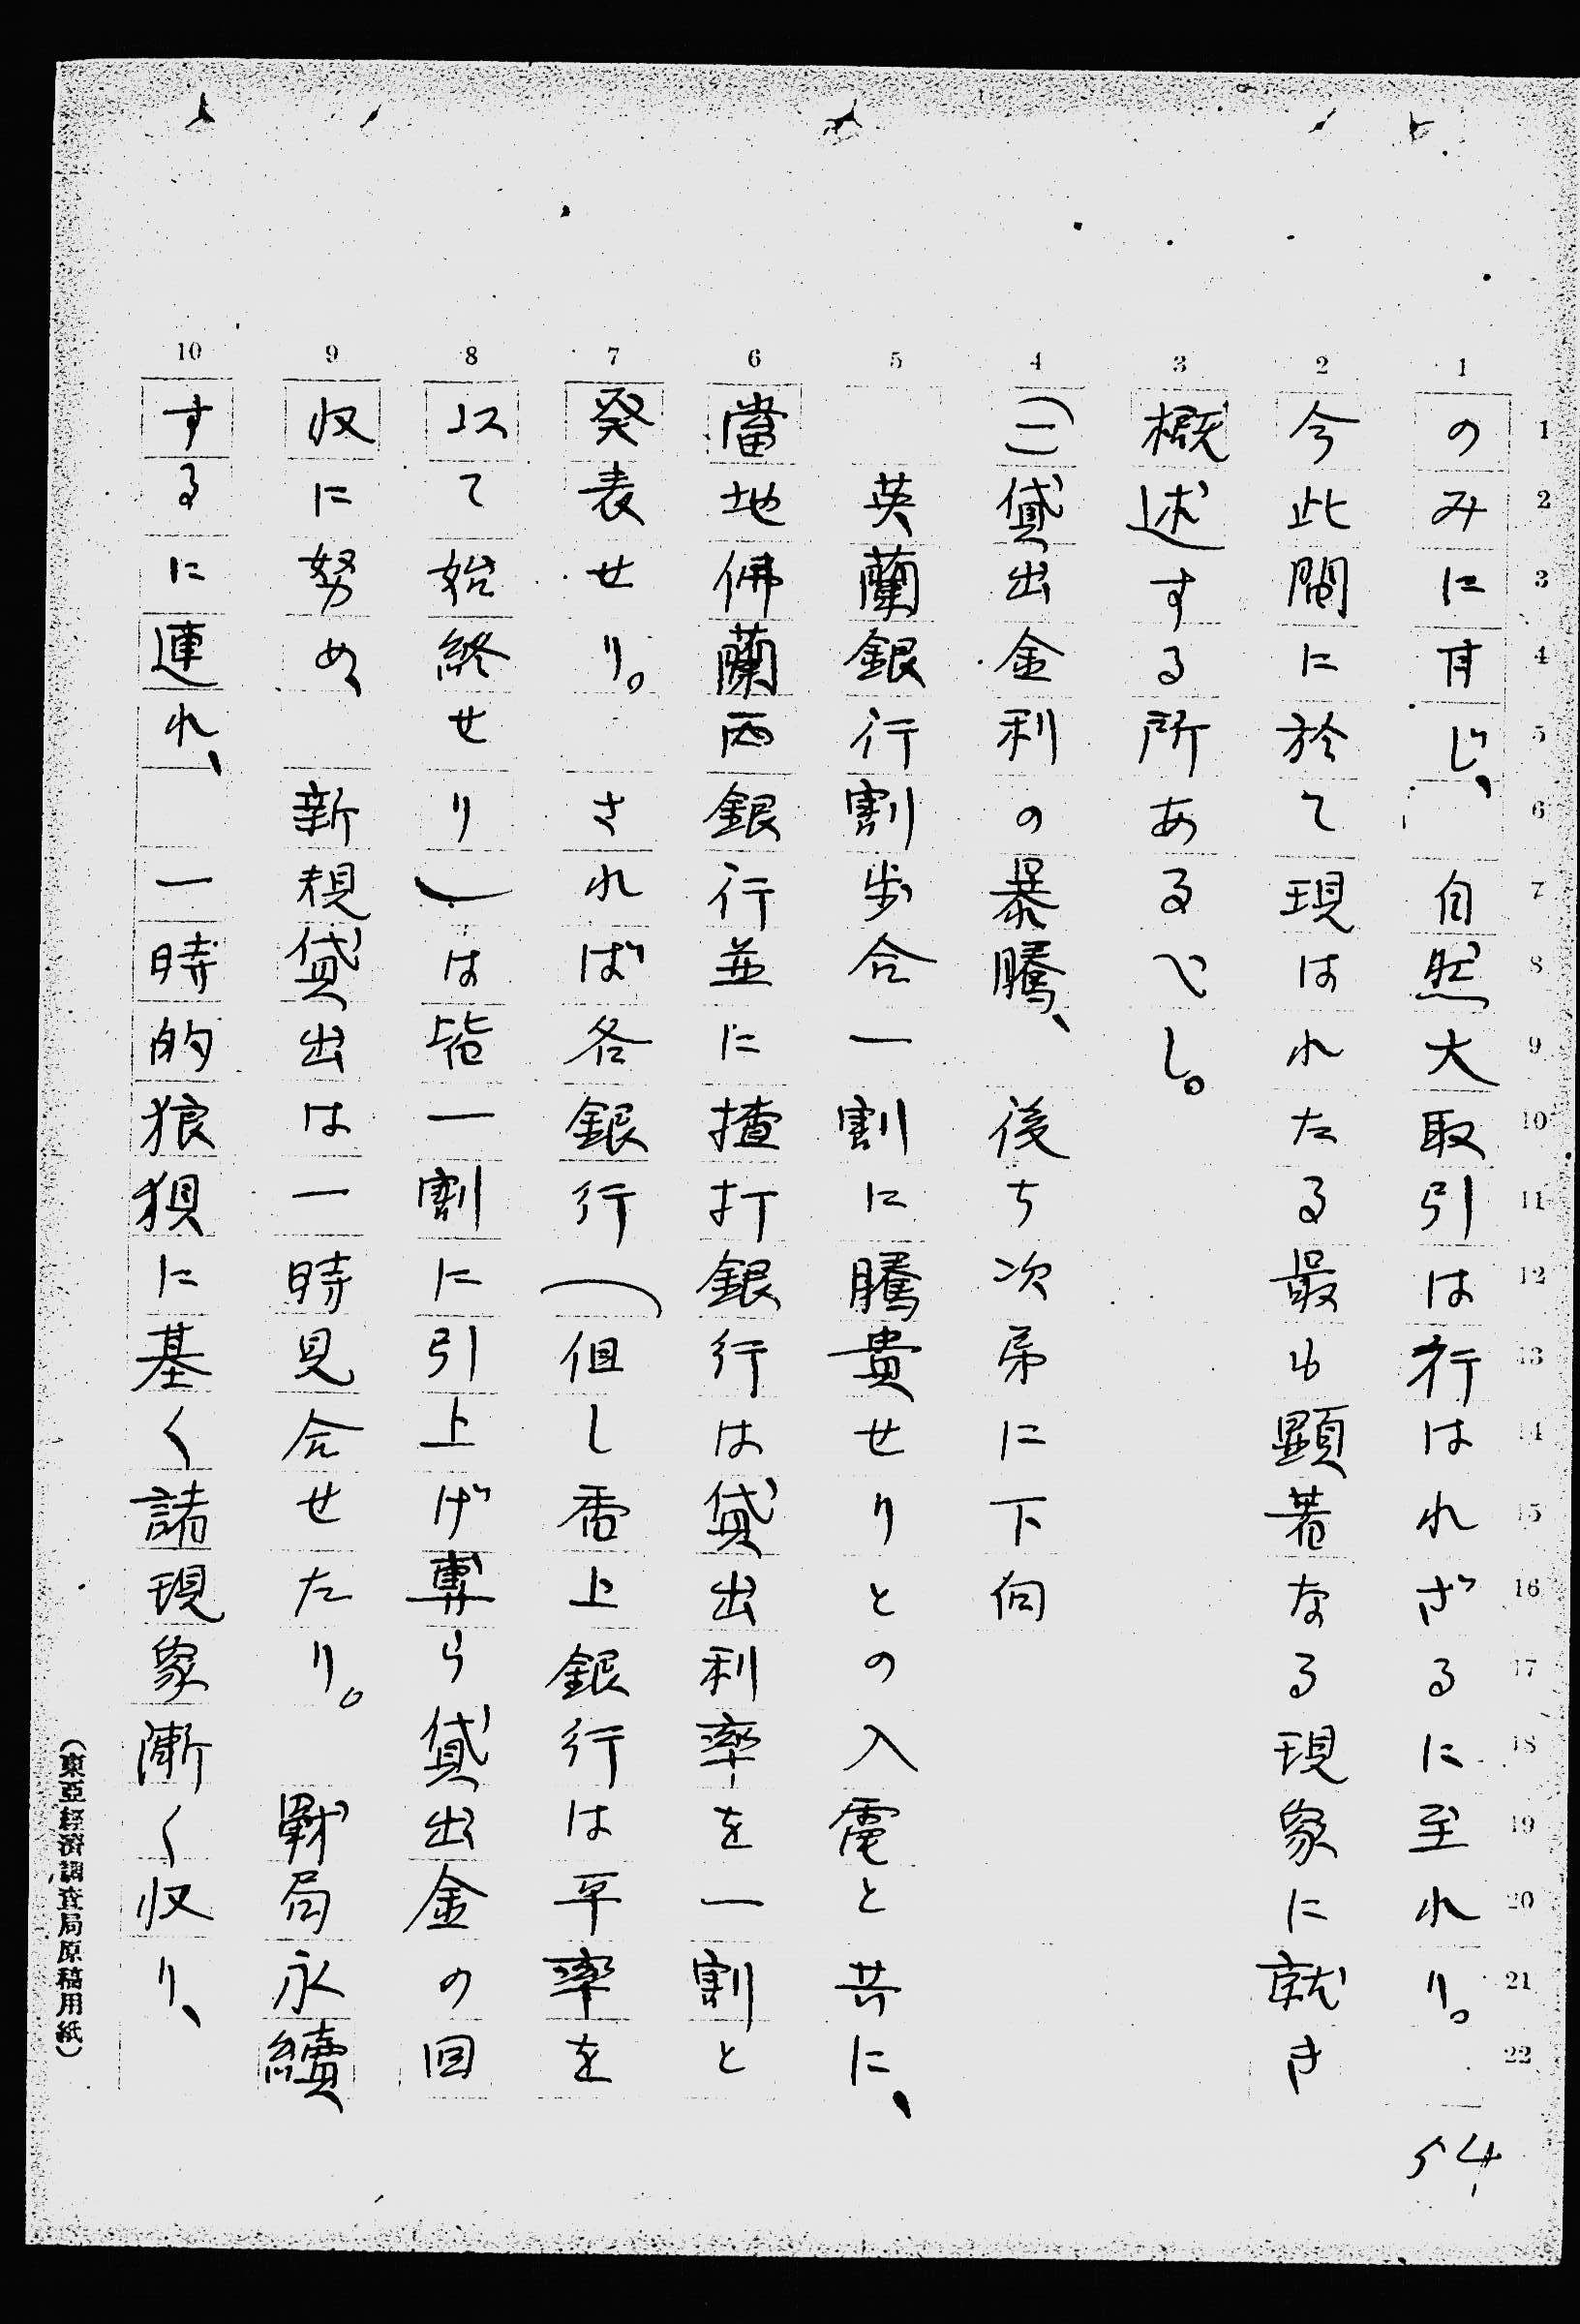 1 2 3 4 5 6 7 8 9 10
1 2 3 4 5 6 7 8 9 10 11 12 13 14 15 16 17 18 19 20 21 22
のみに甘じ、自然大取引は行はれざるに至れり。
今此間に於て現はれたる最も顕著なる現象に就き
概述する所あるべし。
(二)貸出金利の暴騰、後ち次第に下向
英蘭銀行割歩合一割に騰貴せりとの入電と共に、
當地佛蘭西銀行並に揸打銀行は貸出利率を一割と
発表せり。されば各銀行(但し香上銀行は平率を
以て始終せり)は皆一割に引上げ専ら貸出金の回
収に努め、新規貸出は一時見合せたり。戦局永續
するに連れ、一時的狼狽に基く諸現象漸く収り、
54
(東亞經濟調査局原稿用紙)